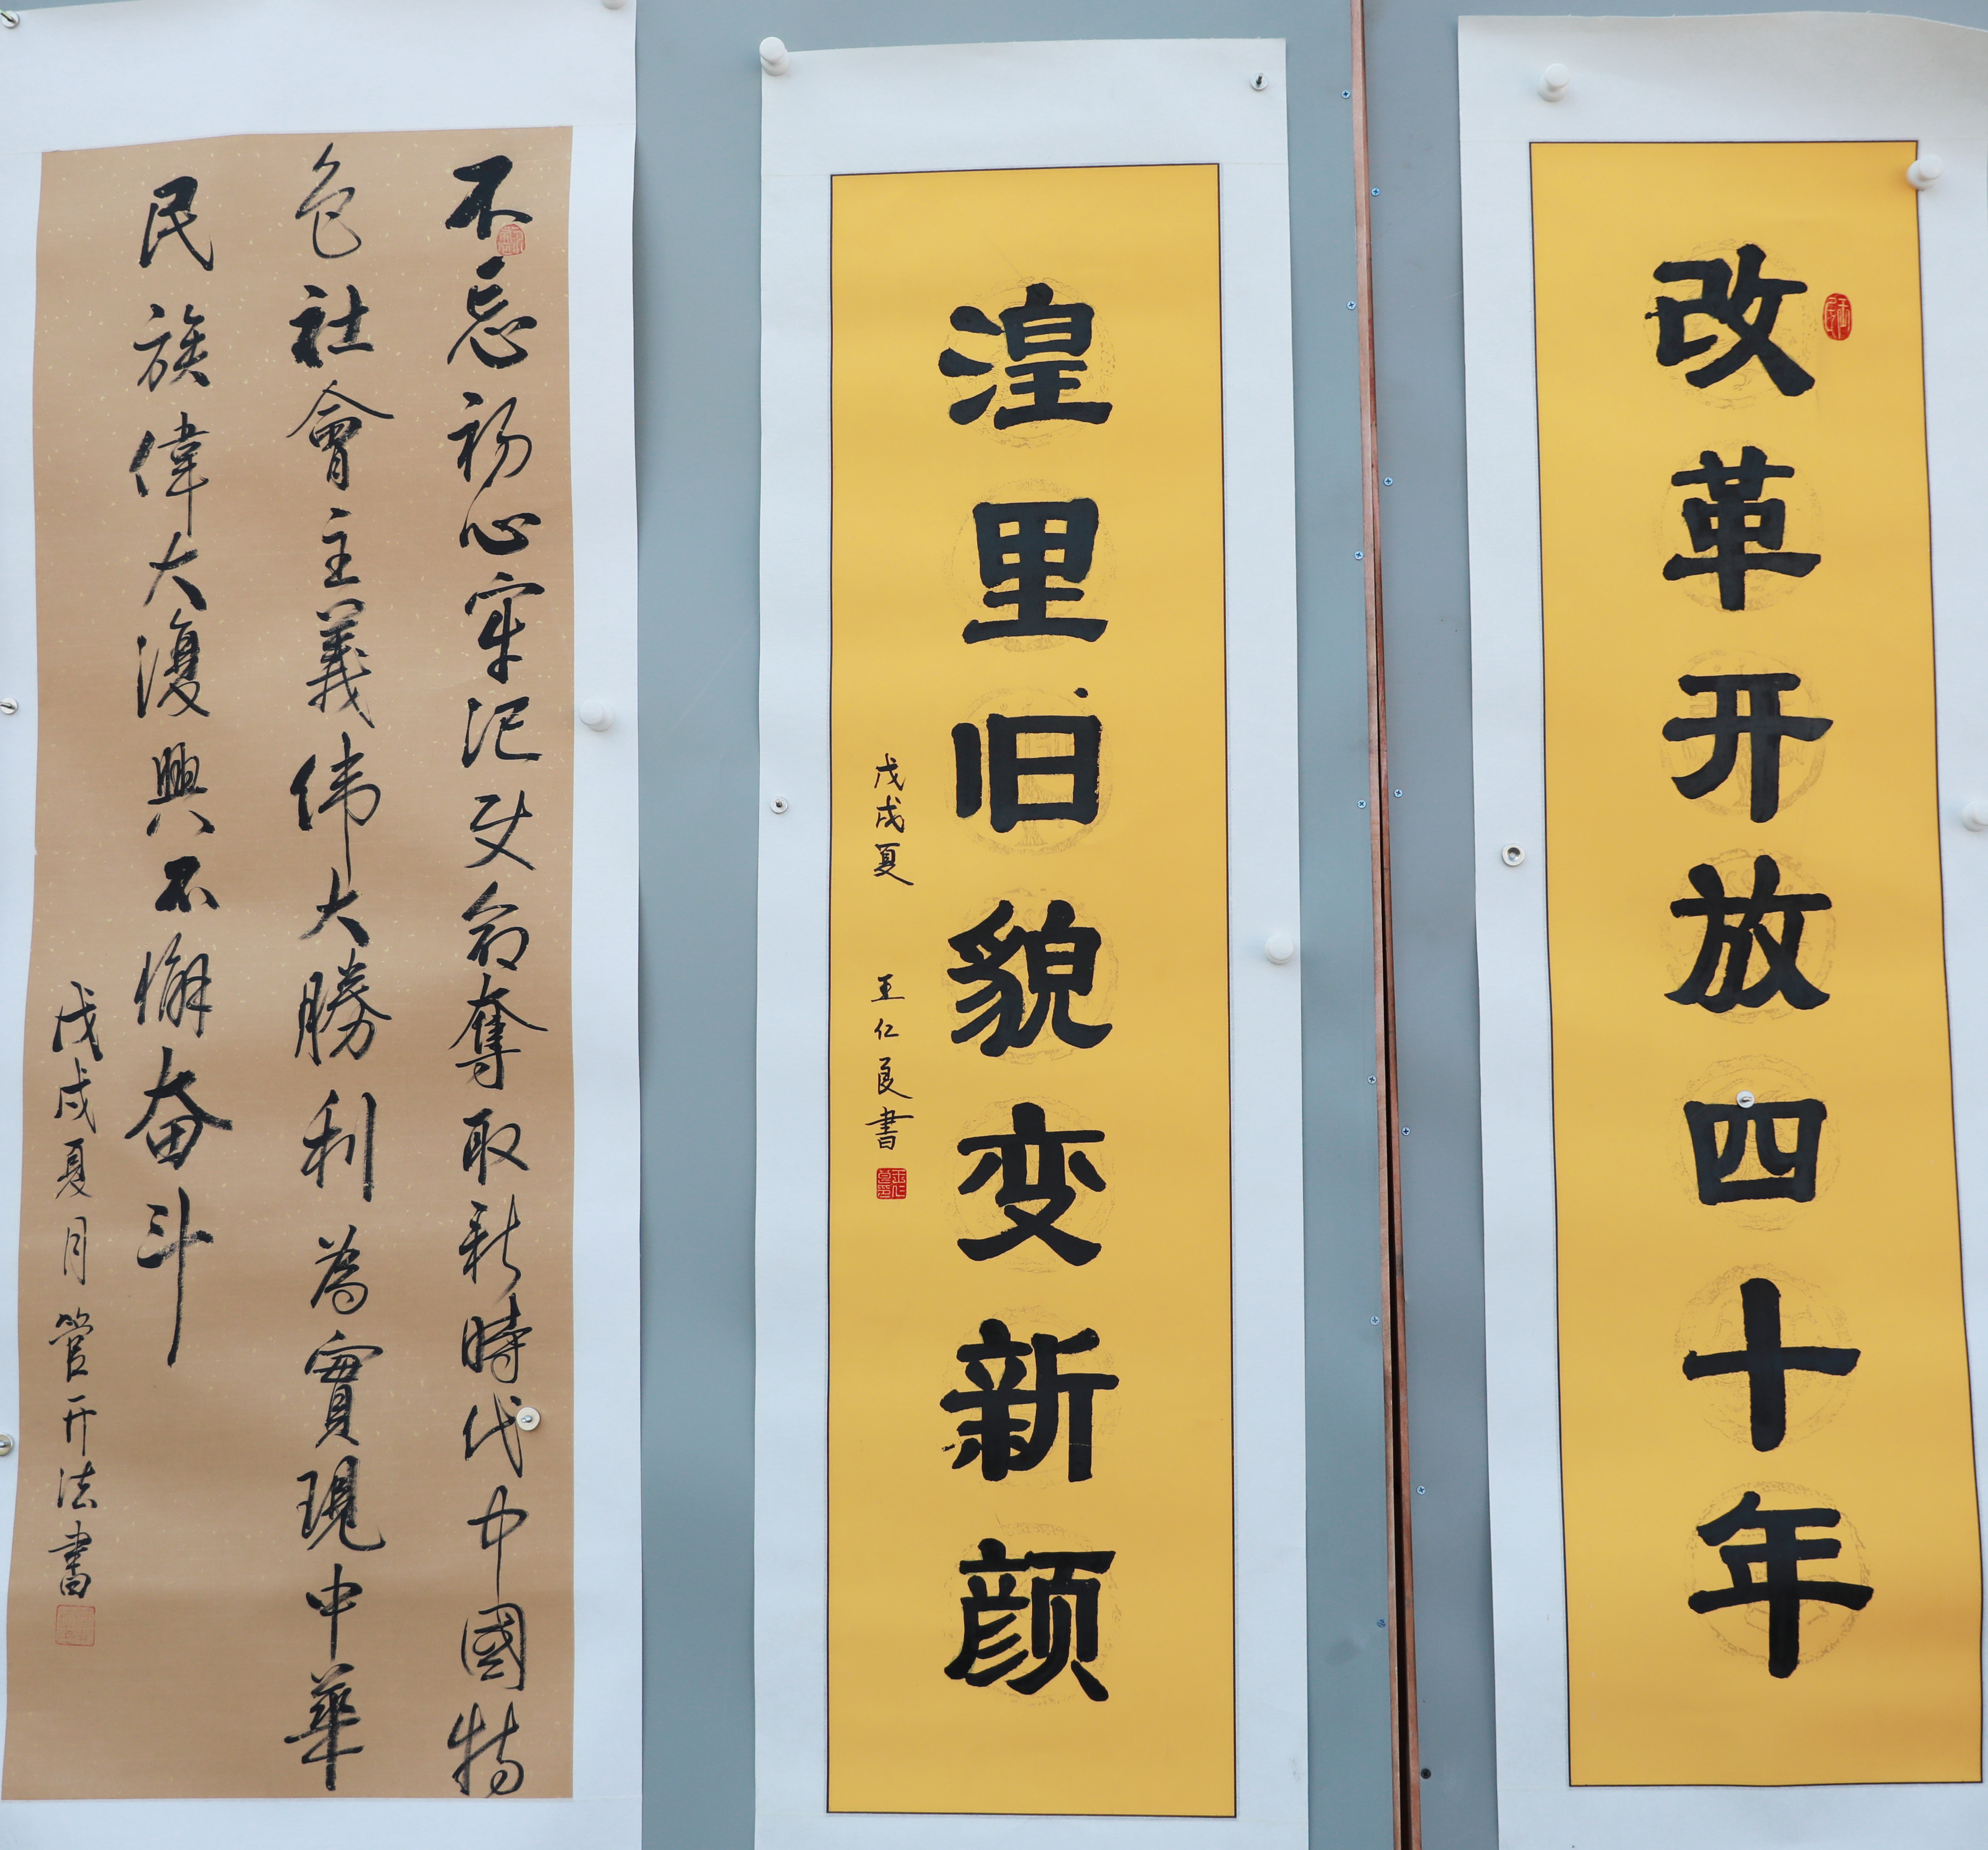 改革开放四十年
湟里旧貌变新颜
戊戌夏 王仁良書
不忘初心牢记使命奪取新時代中國特
色社會主義伟大勝利為實現中華
民族偉大復興不懈奋斗
戊戌夏月管开法書